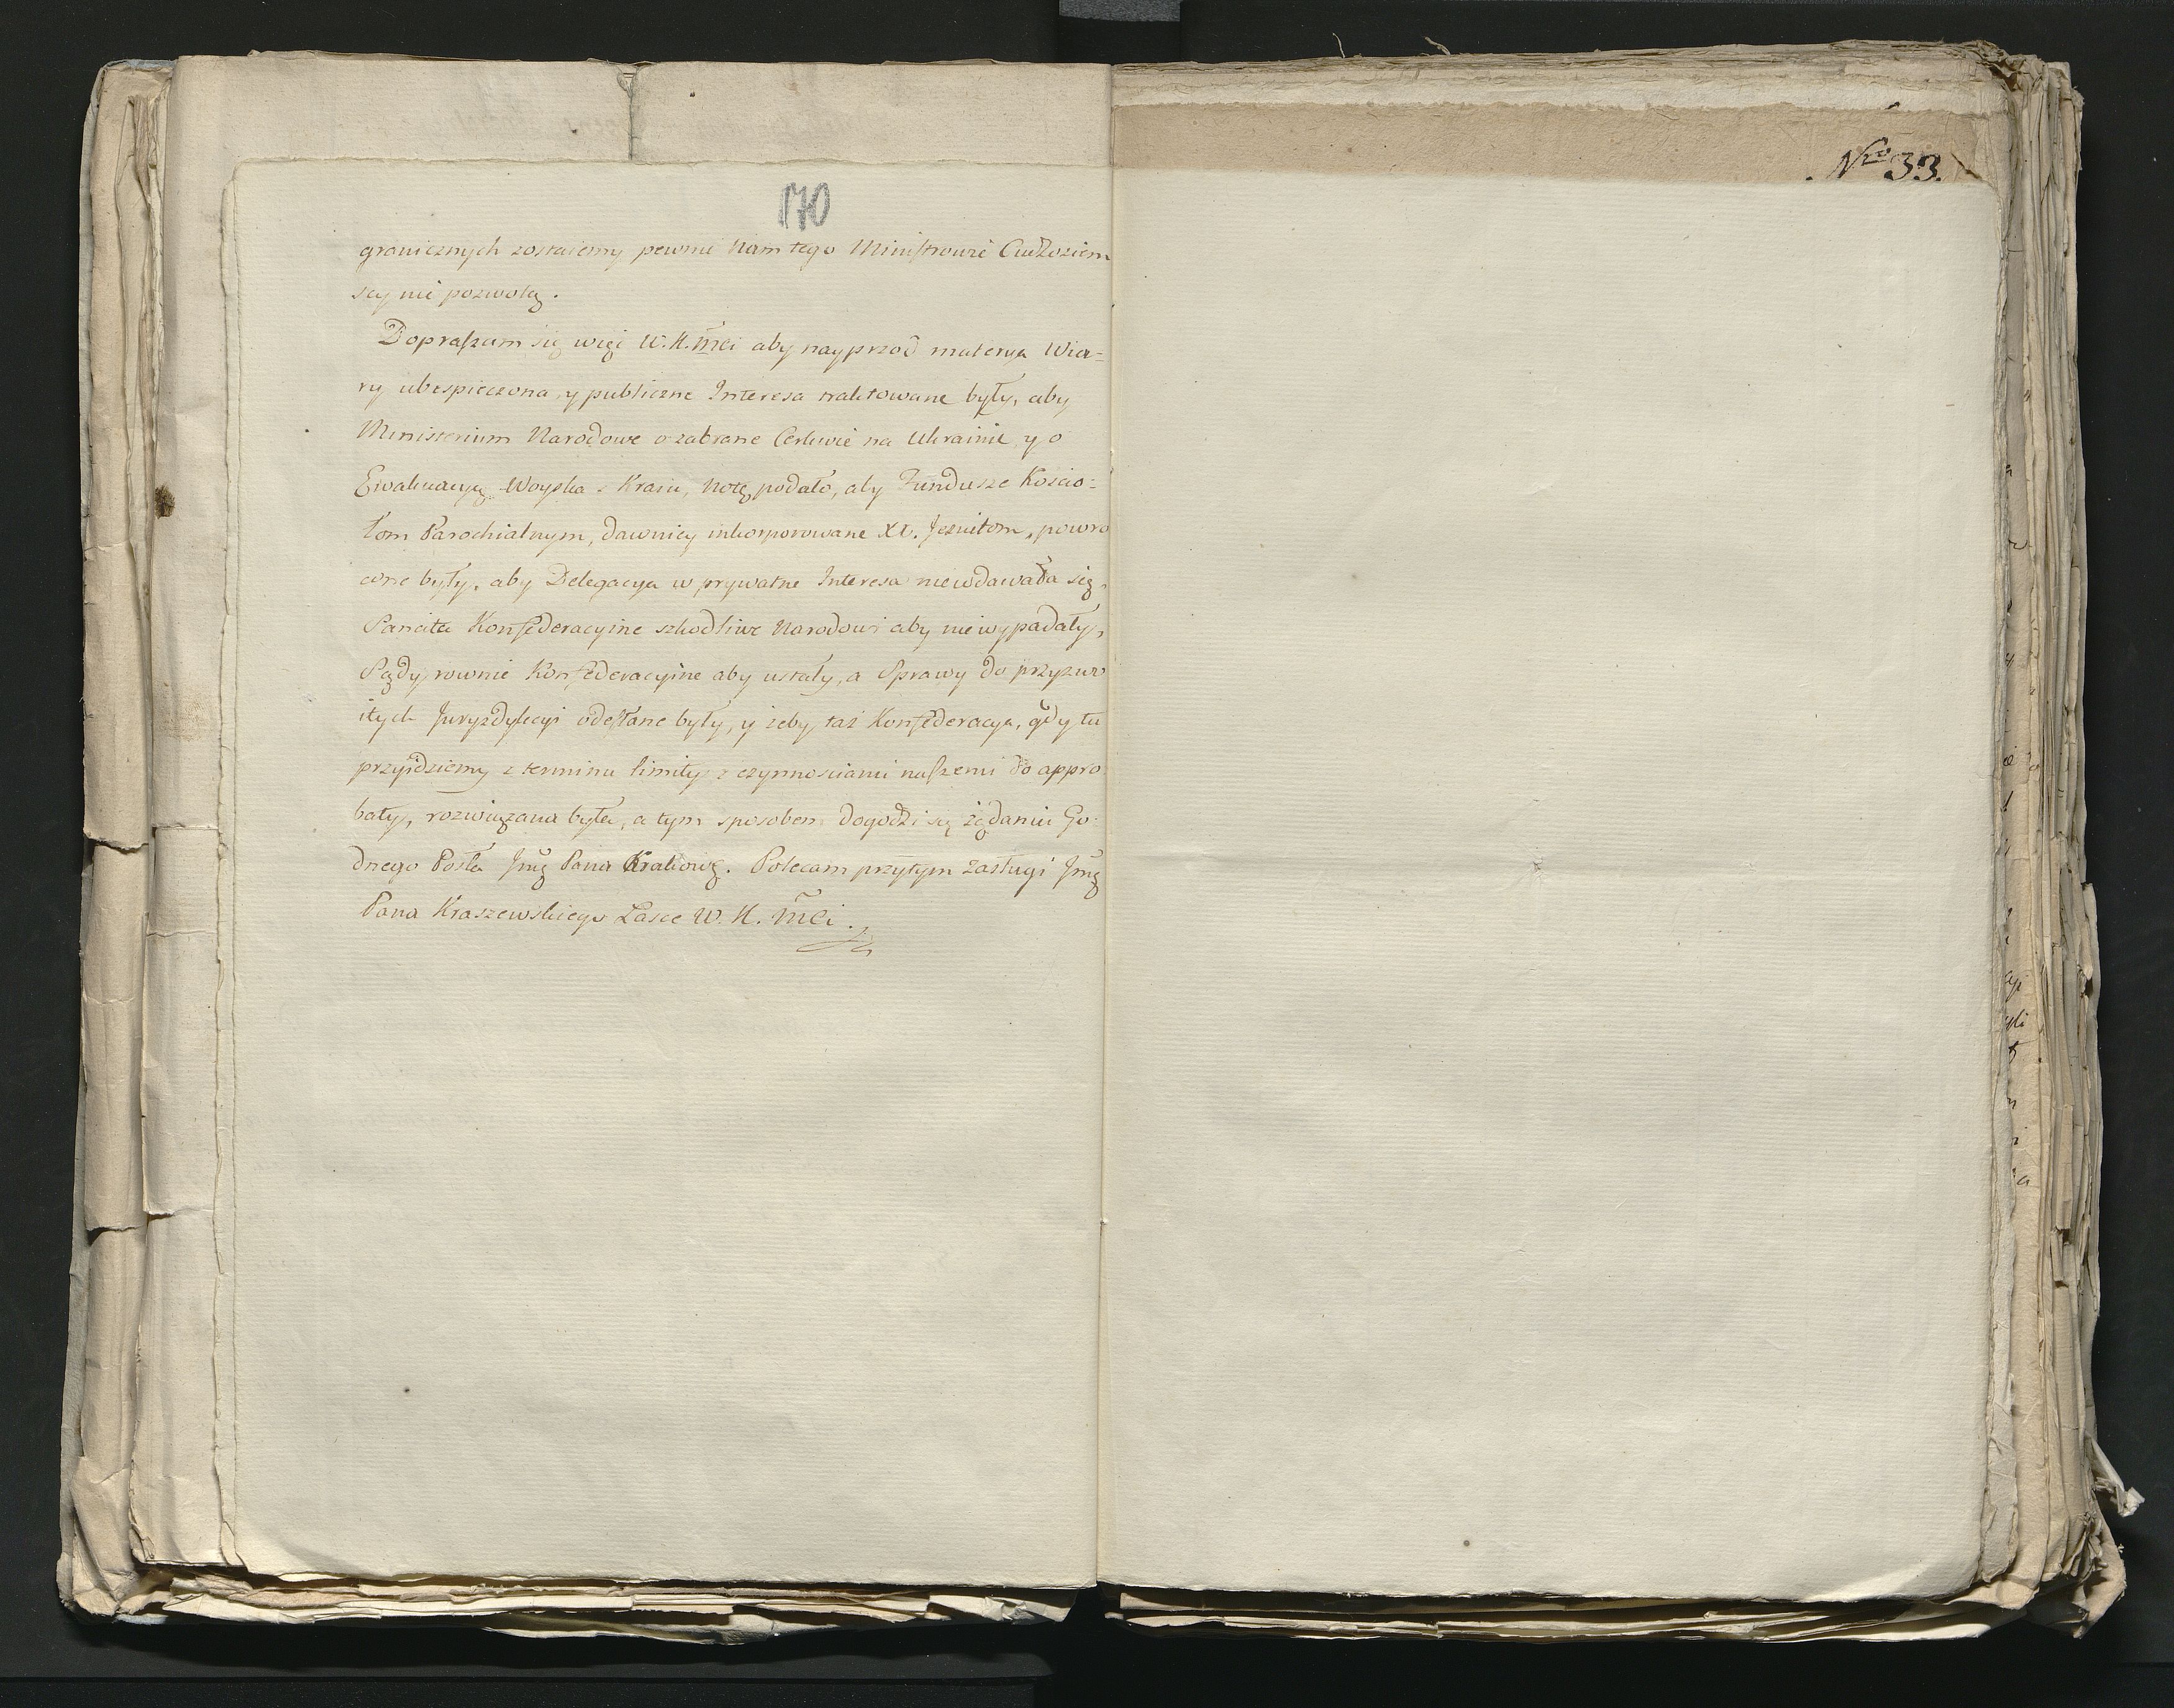 170
granicznych zostaiemy pewnie Nam tego Ministrowie Cudzoziem
scy nie pozwolą.
Dopraszam się więc W. K. Mci aby nayprzod materya Wia=
ry ubespieczona, y publiczne Interesa traktowane były, aby
Ministerium Narodowe o zabrane Cerkwie na Ukrainie y o
Ewakuacyą Woyska z Kraiu, Notę podało, aby Fundusze Koscio=
łom Parochialnym, dawniey inkorporowane XX. Jezuitom, powro
cone były, aby Delegacya w prywatne Interesa niewdawała się,
Sancita Konfederacyine szkodliwe Narodowi aby niewypadały,
Sądy rownie Konfederacyine aby ustały, a Sprawy do przyzwo
itych Juryzdykcyi odesłane były, y żeby taż Konfederacya, gdy tu
przyidziemy z terminu limity z czynnosciami naszemi do appro
baty, rozwiązana była, a tym sposobem dogodzi się żądaniu Go
dnego Posła Jmę Pana Krakowę. Polecam przytym zasługi Jmę
Pana Kraszewskiego Łasce W. K. Mci.
Nro 33.